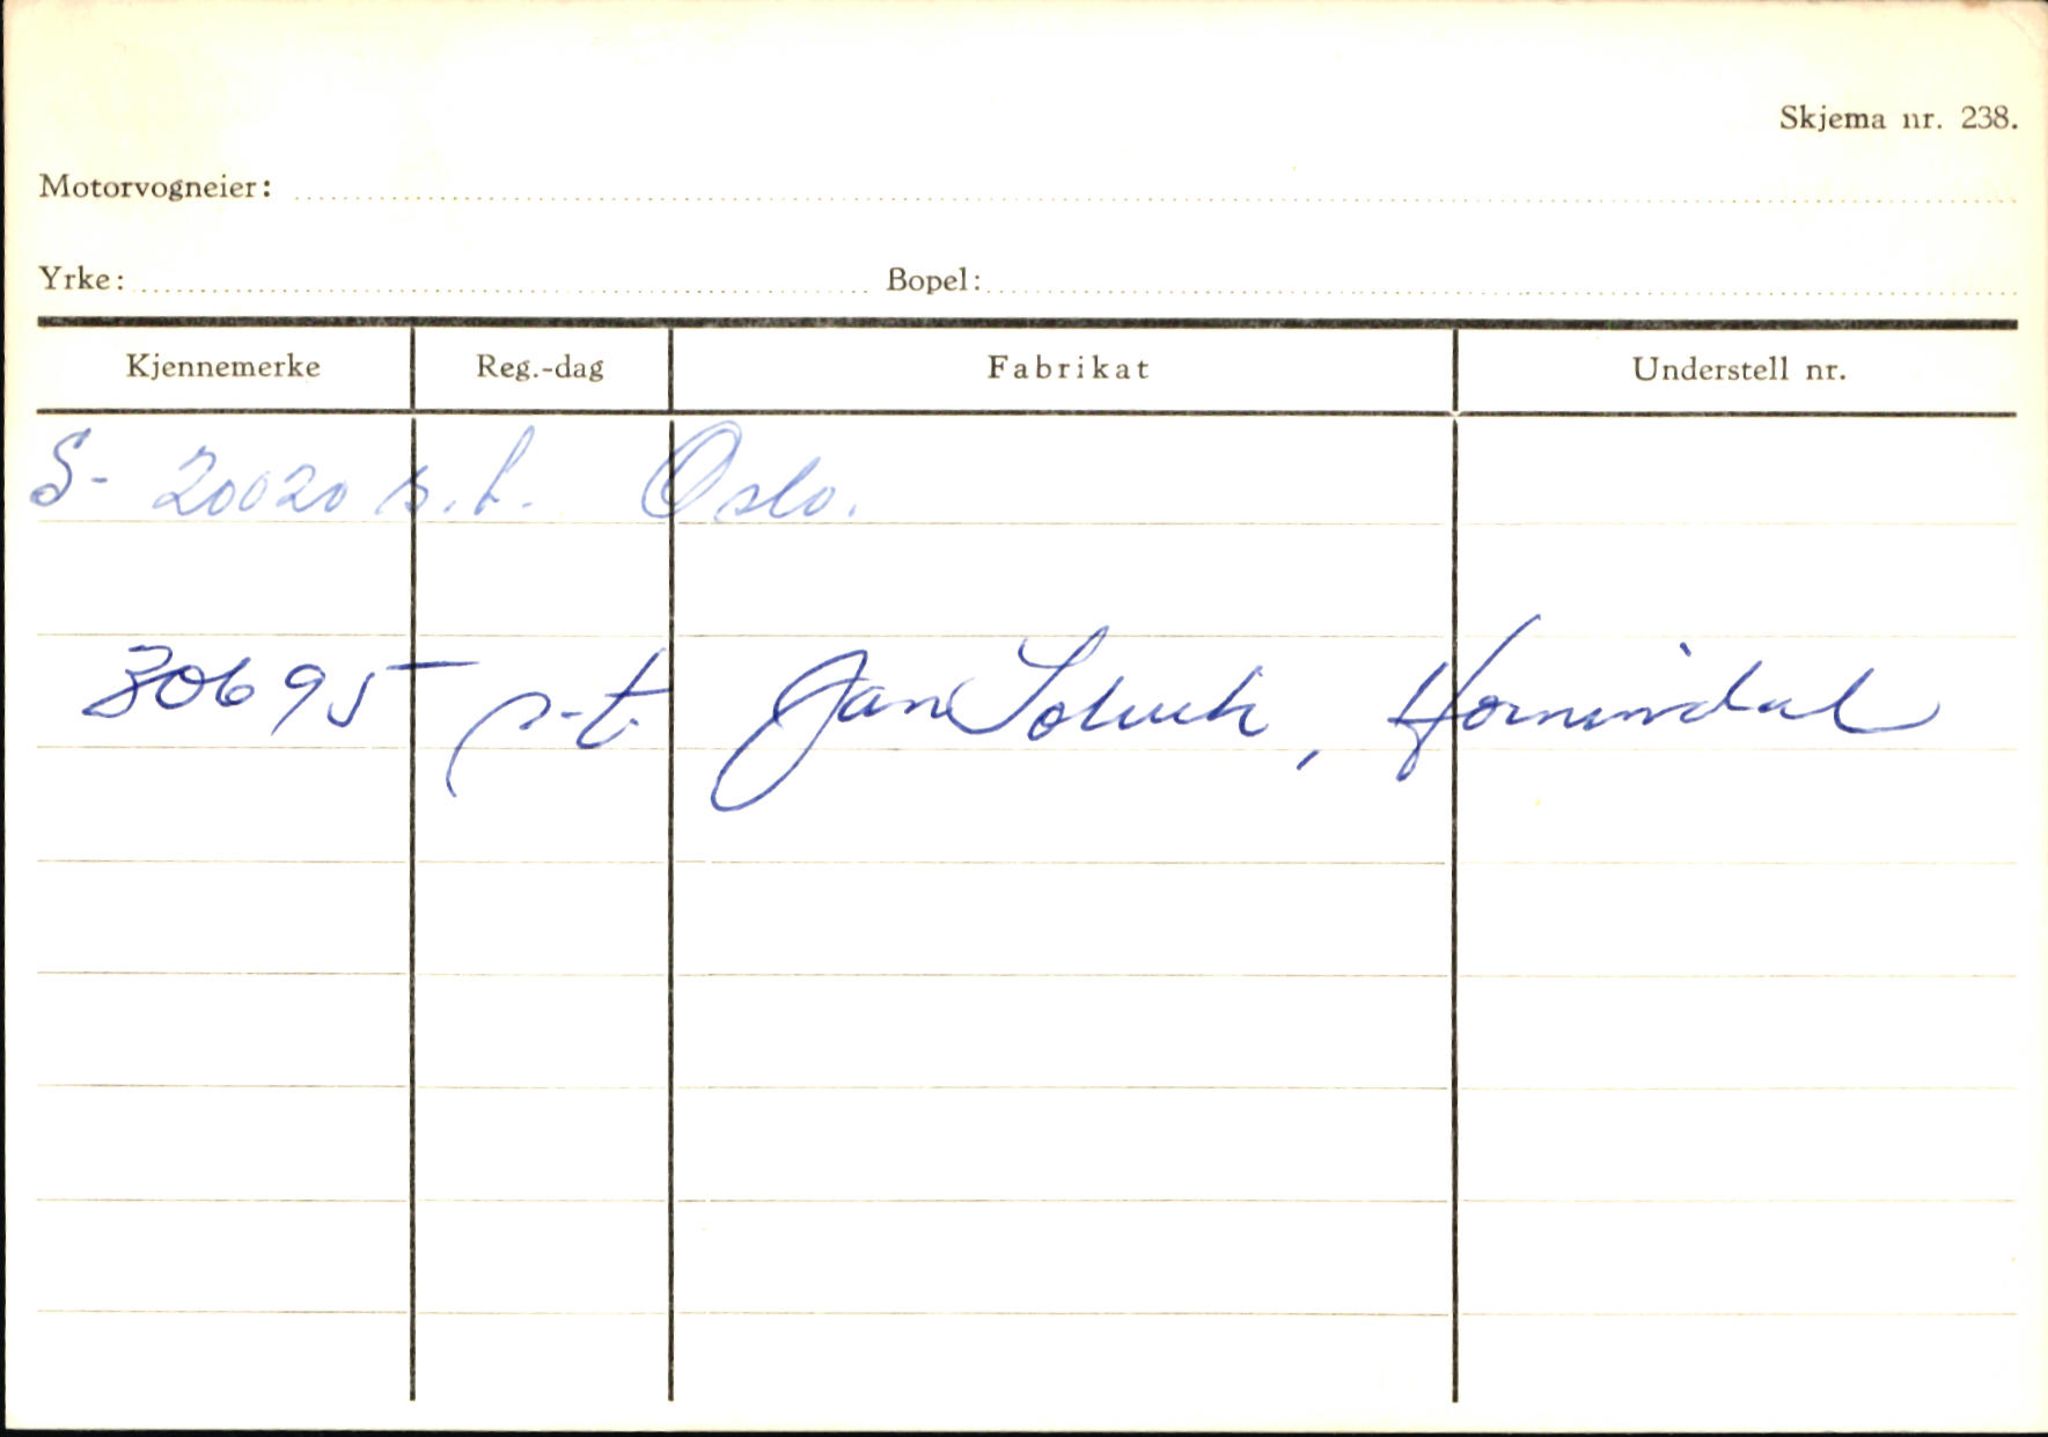 Skjema nr. 238.
Motorvogneier:
Yrke: Bopel:
Kjennemerke Reg.-dag Fabrikat Understell nr.
S- 20020 s.t. Oslo.
30695 s-t. Jan , Hornindal